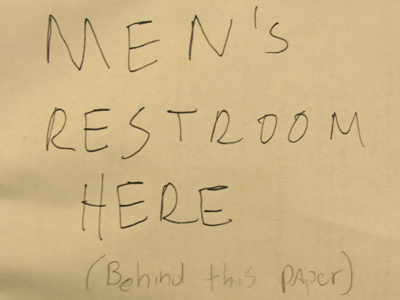 MEN's
RESTROOM
HERE
(Behind this paper)